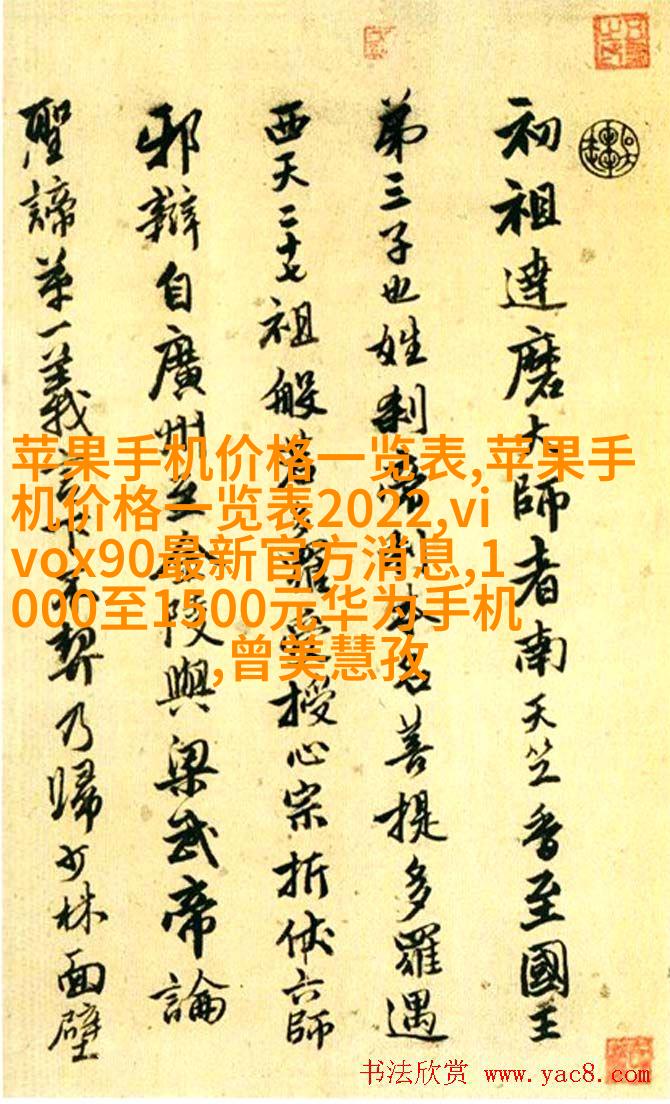 初祖達磨大師者南天竺香至國王
弟三子也姓刹帝利本名菩提多羅遇
西天二十七祖般若多羅受授心宗折伏六師
邪辯自廣州至金陵與梁武帝論
聖諦苐一義言下不契乃歸少林面壁
苹果手机价格一览表,苹果手
机价格一览表2022,vi
vox90最新官方消息,1
000至1500元华为手机
,曾美慧孜
书法欣赏 www.yac8.com